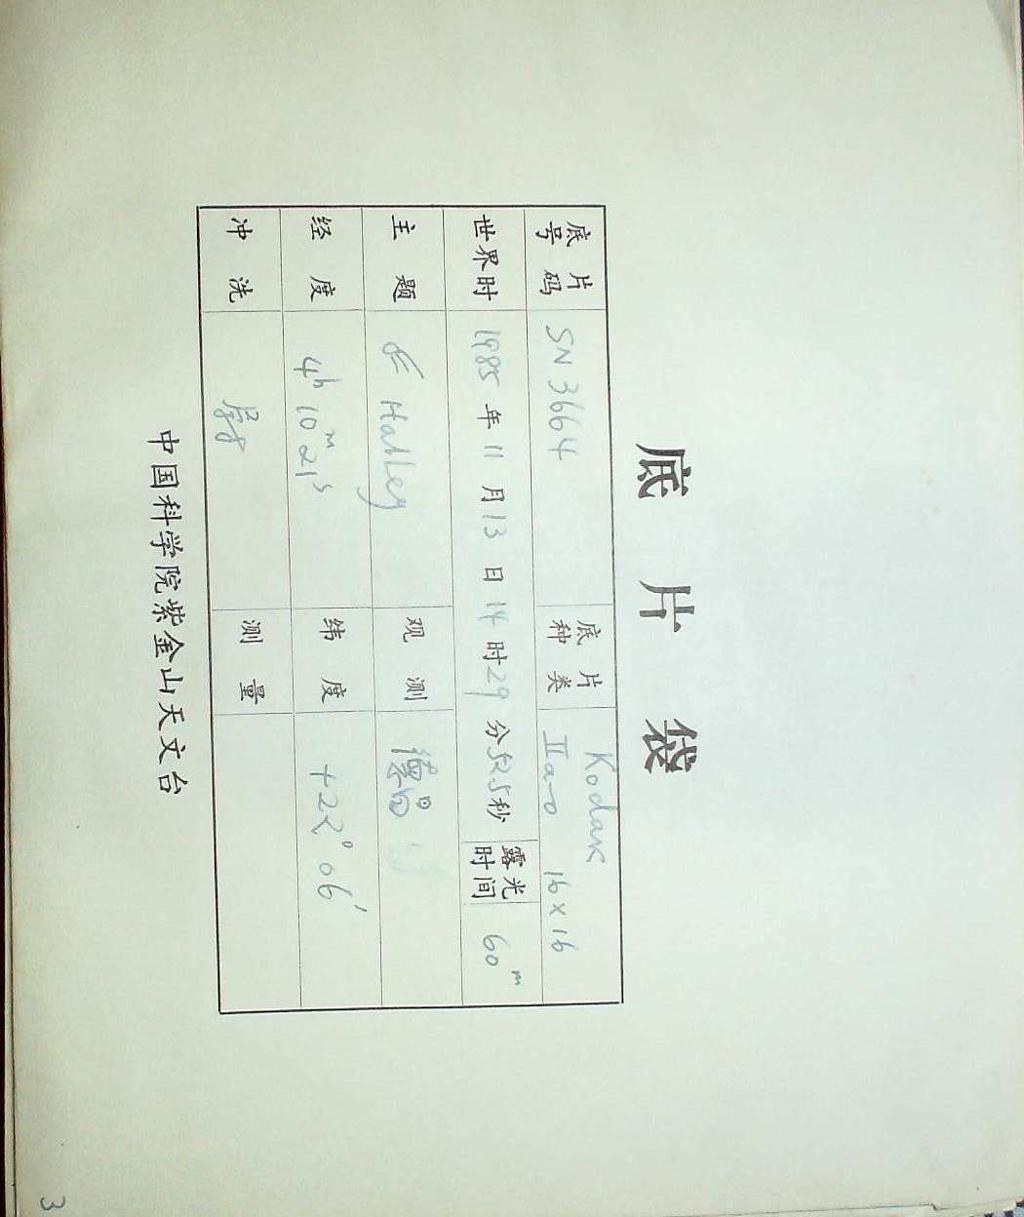 底片袋
底片号码 SN 3664 底片种类 Kodak IIa-O 16×16
世界时 1985年11月13日14时29分52.5秒 露光时间 60m
主题 Halley 观测
经度 4h 10m 21s 纬度 +22° 06′
冲洗 测量
中国科学院紫金山天文台
3